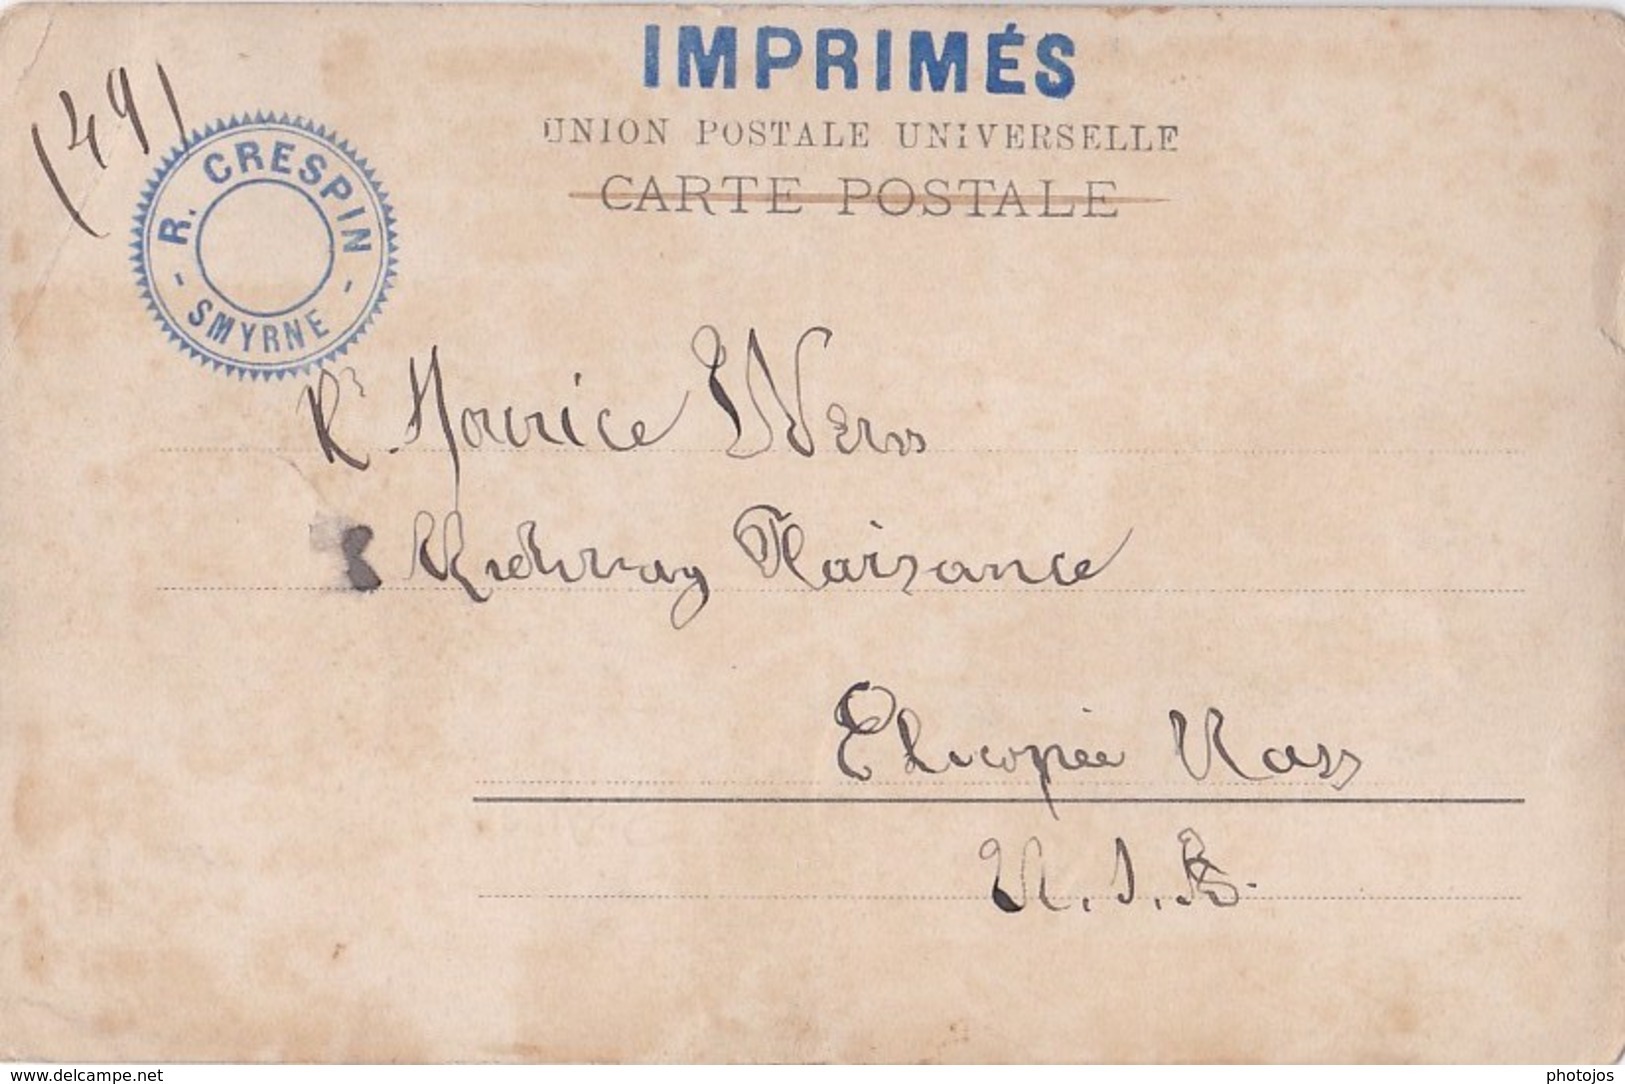 IMPRIMÉS
(49)
UNION POSTALE UNIVERSELLE
CARTE POSTALE
R. CRESPIN
- SMYRNE -
Mr. Maurice
8 Plaisance
Chicopée Mass
U.S.
www.delcampe.net
photojos